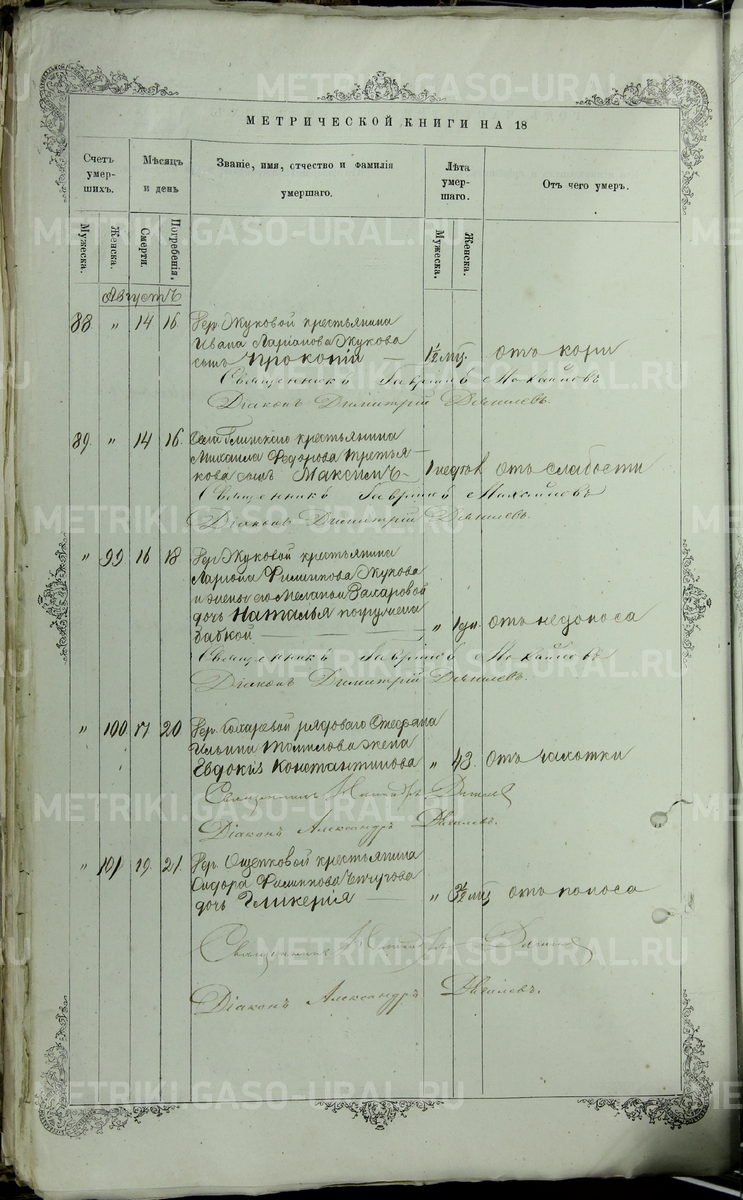 МЕТРИЧЕСКОЙ КНИГИ НА 18
Счет умер- шихъ. Мѣсяцъ и день Званіе, имя, отчество и фамилія умершаго. Лѣта умер- шаго. Отъ чего умеръ.
Мужеска. Женска. Смерти. Погребенія. Мужеска. Женска.
Августъ
88 " 14 16 Дер. Жуковой крестьянина
Ивана Ларіанова Жукова
сынъ Прокопій 1½ мц. отъ кори
Священникъ Гавріилъ
Діаконъ Димитрій
89. " 14 16. Села Глинскаго крестьянина
Михаила Федорова Третья-
кова сынъ Максимъ 1 отъ слабости
Священникъ Гавріилъ
Діаконъ Димитрій
" 99 16 18 Дер. Жуковой крестьянина
Жукова
и жены его Меланіи Захаровой
дочь Наталья погружена
бабкой " 1 дн. отъ недоноса
Священникъ Гавріилъ
Діаконъ Димитрій
" 100 17 20 Дер. рядоваго Стефана
Ильина Томилова жена
Евдокія Константинова " 43. отъ чахотки
Священникъ
Діаконъ Александръ
" 101 19. 21. Дер. Ощепковой крестьянина
Сидора
дочь Гликерія " 3½ мц отъ поноса
Священникъ
Діаконъ Александръ
METRIKI.GASO-URAL.RU